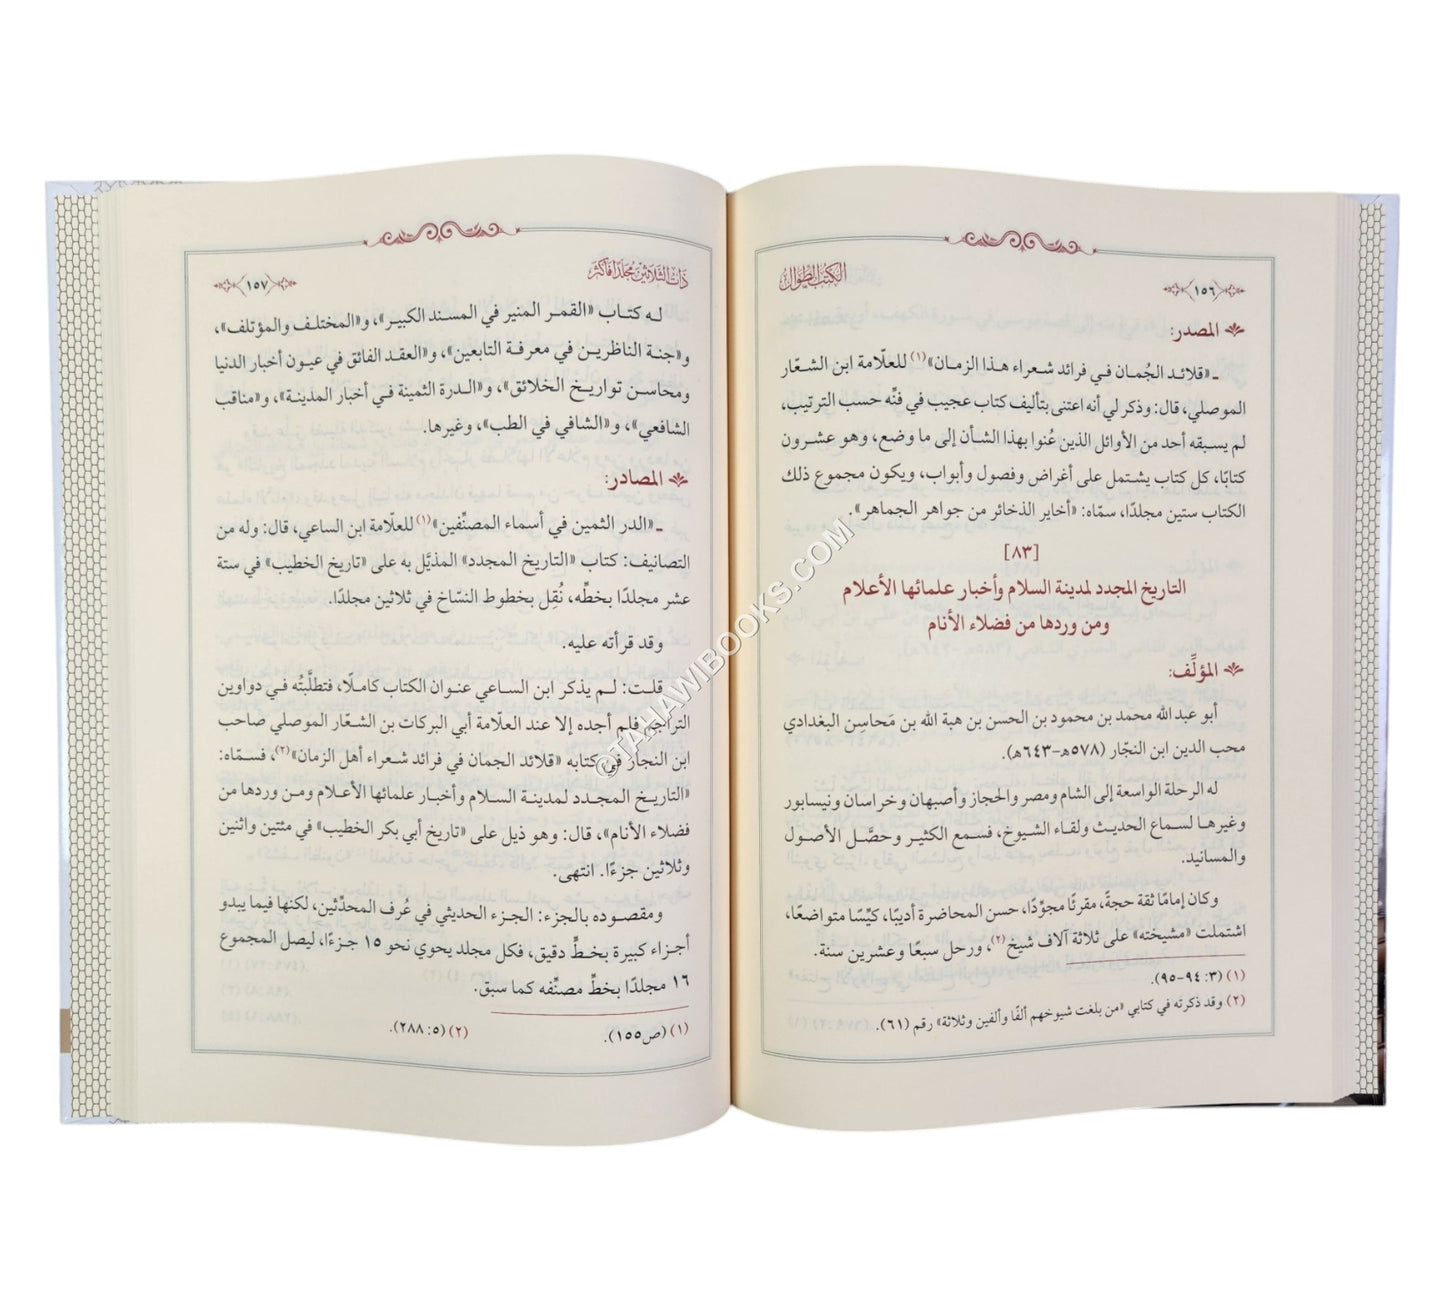 الكتب الطوال
١٥٦
المصدر:
ـ «قلائـد الجُمـان فـي فرائد شـعراء هـذا الزمـان»(١) للعلّامة ابن الشـعّار
الموصلي، قال: وذكر لي أنه اعتنى بتأليف كتاب عجيب في فنِّه حسب الترتيب،
لم يسـبقه أحد من الأوائل الذين عُنوا بهذا الشـأن إلى ما وضع، وهو عشـرون
كتابًا، كل كتاب يشـتمل على أغراض وفصول وأبواب، ويكون مجموع ذلك
الكتاب ستين مجلدًا، سمّاه: «أخاير الذخائر من جواهر الجماهر».
[٨٣]
التاريخ المجدد لمدينة السلام وأخبار علمائها الأعلام
ومن وردها من فضلاء الأنام
المؤلِّف:
أبو عبد الله محمد بن محمود بن الحسن بن هبة الله بن مَحاسِن البغدادي
محب الدين ابن النجّار (٥٧٨هـ-٦٤٣هـ).
له الرحلة الواسعة إلى الشام ومصر والحجاز وأصبهان وخراسان ونيسابور
وغيرهـا لسـماع الحديـث ولقاء الشـيوخ، فسـمع الكثيـر وحصَّـل الأصـول
والمسانيد.
وكان إمامًا ثقة حجةً، مقرئًا مجوِّدًا، حسن المحاضرة أديبًا، كيِّسًا متواضعًا،
اشتملت «مشيخته» على ثلاثة آلاف شيخ(٢)، ورحل سبعًا وعشرين سنة.
(١) (٣: ٩٤-٩٥).
(٢) وقد ذكرته في كتابي «من بلغت شيوخهم ألفًا وألفين وثلاثة» رقم (٦١).
ذات الثلاثين مجلدًا فأكثر
١٥٧
لـه كتـاب «القمـر المنير في المسـند الكبيـر»، و«المختلـف والمؤتلف»،
و«جنـة الناظريـن في معرفـة التابعين»، و«العقـد الفائق في عيـون أخبار الدنيا
ومحاسـن تواريـخ الخلائق»، و«الـدرة الثمينة فـي أخبار المدينـة»، و«مناقب
الشافعي»، و«الشافي في الطب»، وغيرها.
المصادر:
ـ «الدر الثمين في أسماء المصنِّفين»(١) للعلّامة ابن الساعي، قال: وله من
التصانيف: كتاب «التاريخ المجدد» المذيَّل به على «تاريخ الخطيب» في ستة
عشر مجلدًا بخطِّه، نُقِل بخطوط النسّاخ في ثلاثين مجلدًا.
وقد قرأته عليه.
قلـت: لـم يذكر ابن السـاعي عنـوان الكتاب كامـلًا، فتطلَّبتُه فـي دواوين
التراجم فلم أجده إلا عند العلّامة أبي البركات بن الشعّار الموصلي صاحب
ابن النجار في كتابه «قلائد الجمان في فرائد شعراء أهل الزمان»(٢)، فسـمّاه:
«التاريـخ المجـدد لمدينـة السـلام وأخبـار علمائها الأعـلام ومـن وردها من
فضلاء الأنام»، قال: وهو ذيل على «تاريخ أبي بكر الخطيب» في مئتين واثنين
وثلاثين جزءًا. انتهى.
ومقصـوده بالجزء: الجـزء الحديثي في عُرف المحدِّثين، لكنها فيما يبدو
أجـزاء كبيرة بخـطٍّ دقيق، فكل مجلد يحوي نحو ١٥ جـزءًا، ليصل المجموع
١٦ مجلدًا بخطِّ مصنِّفه كما سبق.
(١) (ص١٥٥).
(٢) (٥: ٢٨٨).
©TAHAWIBOOKS.COM